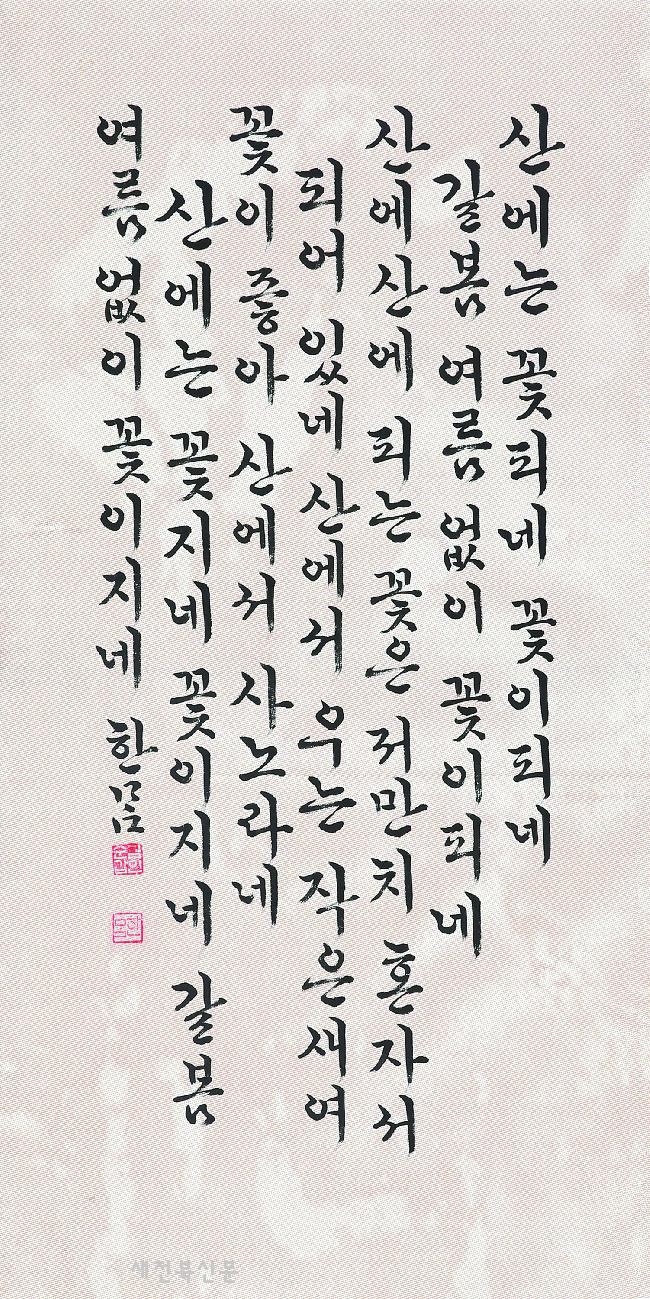 산에는 꽃피네 꽃이피네
갈봄 여름 없이 꽃이피네
산에 산에 피는 꽃은 저만치 혼자서
피어 있네 산에서 우는 작은새여
꽃이 좋아 산에서 사노라네
산에는 꽃지네 꽃이지네 갈봄
여름 없이 꽃이지네 한뫼
새전북신문